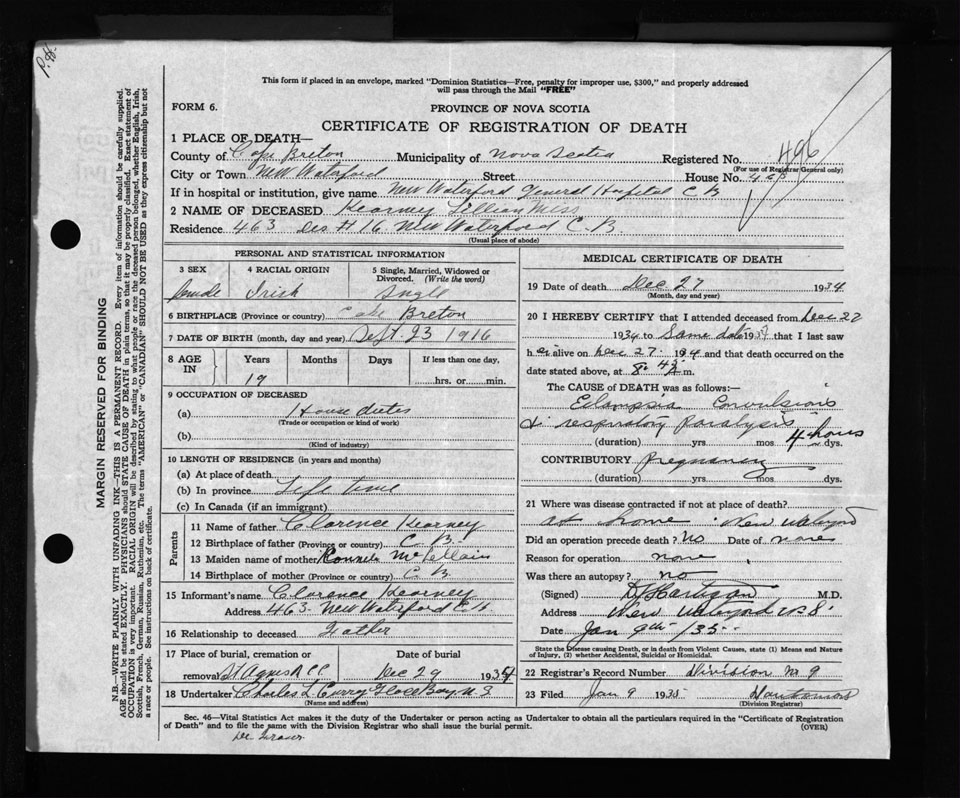 P.H.
This form if placed in an envelope, marked "Dominion Statistics—Free, penalty for improper use, $300," and properly addressed
will pass through the Mail "FREE"
FORM 6.
PROVINCE OF NOVA SCOTIA
CERTIFICATE OF REGISTRATION OF DEATH
1 PLACE OF DEATH—
County of Cape Breton Municipality of Nova Scotia Registered No. 496
(For use of Registrar General only)
City or Town New Waterford Street House No.
If in hospital or institution, give name New Waterford General Hospital C B
2 NAME OF DECEASED Kearney Lillian Miss
Residence 463 Des H 16. New Waterford C. B.
(Usual place of abode)
PERSONAL AND STATISTICAL INFORMATION
3 SEX 4 RACIAL ORIGIN 5 Single, Married, Widowed or
Divorced. (Write the word)
female Irish Single
6 BIRTHPLACE (Province or country) Cape Breton
7 DATE OF BIRTH (month, day and year) Sept. 23 1916
8 AGE IN Years Months Days If less than one day,
19 hrs. or min.
9 OCCUPATION OF DECEASED
(a) House duties
(Trade or occupation or kind of work)
(b)
(Kind of industry)
10 LENGTH OF RESIDENCE (in years and months)
(a) At place of death
(b) In province Life time
(c) In Canada (if an immigrant)
Parents
11 Name of father Clarence Kearney
12 Birthplace of father (Province or country) C. B.
13 Maiden name of mother
14 Birthplace of mother (Province or country) C. B.
15 Informant's name Clarence Kearney
Address 463 New Waterford
16 Relationship to deceased Father
17 Place of burial, cremation or Date of burial
removal St Agnes Dec 29 1934
18 Undertaker Charles L Curry Glace Bay N S
(Name and address)
MEDICAL CERTIFICATE OF DEATH
19 Date of death Dec 27 1934
(Month, day and year)
20 I HEREBY CERTIFY that I attended deceased from Dec 27
1934 to Same date 1934 that I last saw
her alive on Dec 27 1934 and that death occurred on
date stated above, at m.
The CAUSE of DEATH was as follows:—
Eclampsia Convulsions
respiratory Paralysis
(duration) yrs. mos 4 hours dys.
CONTRIBUTORY Pregnancy
(duration) yrs. mos. dys.
21 Where was disease contracted if not at place of death?
at home New Waterford
Did an operation precede death? No Date of none
Reason for operation none
Was there an autopsy? no
(Signed) M.D.
Address New Waterford
Date Jan 9th /35
State the Disease causing Death, or in death from Violent Causes, state (1) Means and Nature
of Injury, (2) whether Accidental, Suicidal or Homicidal.
22 Registrar's Record Number Division No 9
23 Filed Jan 9 1935
(Division Registrar)
Sec. 46—Vital Statistics Act makes it the duty of the Undertaker or person acting as Undertaker to obtain all the particulars required in the "Certificate of Registration
of Death" and to file the same with the Division Registrar who shall issue the burial permit. (OVER)
MARGIN RESERVED FOR BINDING
N.B.—WRITE PLAINLY WITH UNFADING INK—THIS IS A PERMANENT RECORD. Every item of information should be carefully supplied.
AGE should be stated EXACTLY. PHYSICIANS should STATE CAUSE OF DEATH in plain terms, so that it may be properly classified. Exact statement of
OCCUPATION is very important. RACIAL ORIGIN will be described by stating to what people or race the deceased person belonged, whether English, Irish,
Scottish, French, German, Russian, Ruthenian, etc. The terms "AMERICAN" or "CANADIAN" SHOULD NOT BE USED as they express citizenship but not
a race or people. See instructions on back of certificate.